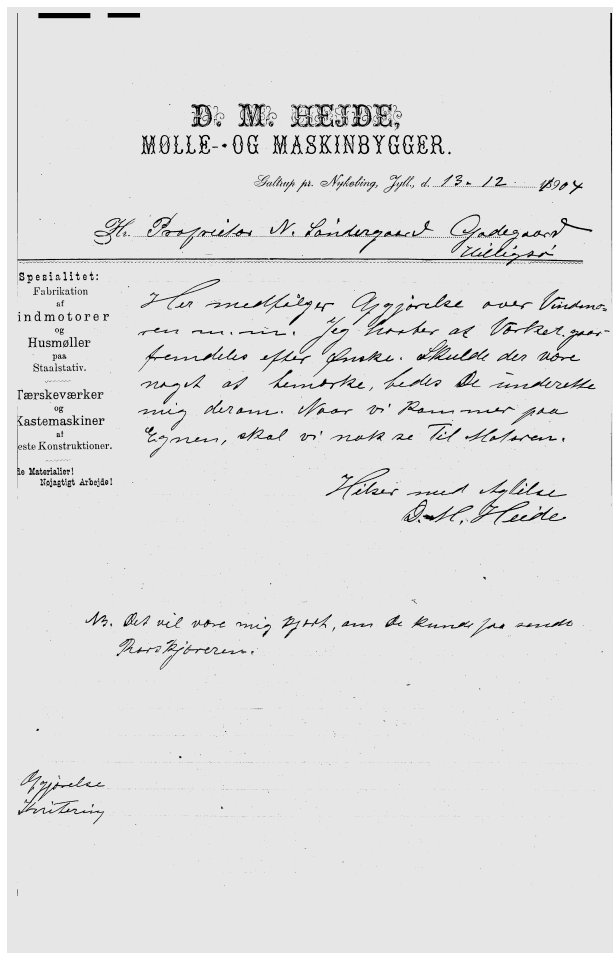 D. M. HEJDE,
MØLLE- OG MASKINBYGGER.
Galtrup pr. Nykøbing, Jyll., d. 13-12 1904
Hr. Proprietær N. Søndergaard Godegaard
Spesialitet:
Fabrikation
af
indmotorer
og
Husmøller
paa
Staalstativ.
Tærskeværker
og
Kastemaskiner
af
este Konstruktioner.
de Materialier!
Nøjagtigt Arbejde!
Her medfølger Opgjørelse over Vindmo-
ren m.m. Jeg haaber at Værket gaar
fremdeles efter Ønske. Skulde der være
noget at bemærke, bedes De underette
mig derom. Naar vi kommer paa
Egnen, skal vi nok se til Motoren.
Hilser med Agtelse
D. M. Heide
NB. Det vil være mig kjært, om De kunde faa sendt
Opgjørelse
Kvitering